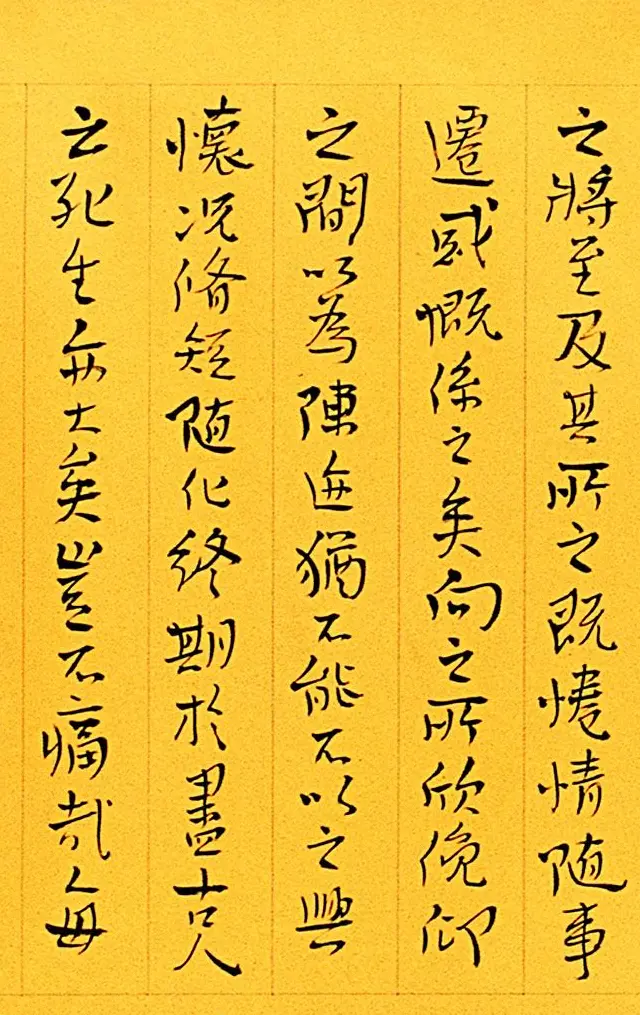 之將至及其所之既惓情隨事
遷感慨係之矣向之所欣俛仰
之間以為陳迹猶不能不以之興
懷況脩短隨化終期於盡古人
云死生亦大矣豈不痛哉每